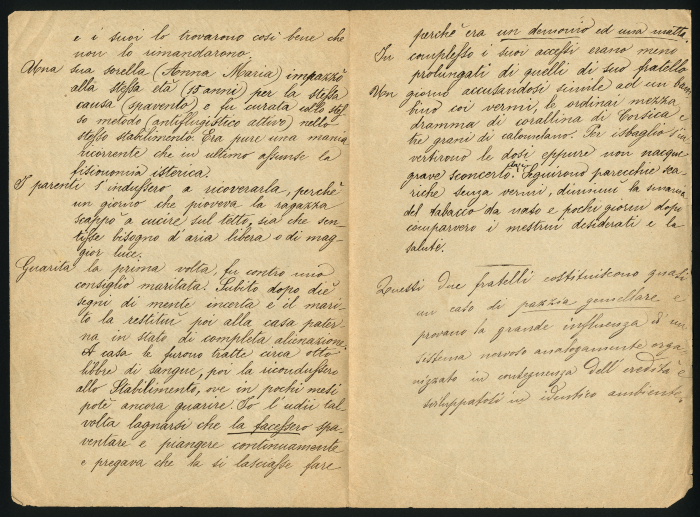 e i suoi lo trovarono così bene che
non lo rimandarono.
Una sua sorella (Anna Maria) impazzò
alla stessa età (15 anni) per la stessa
causa (spavento) e fu curata collo stes-
so metodo (antiflogistico attivo) nello
stesso stabilimento. Era pure una mania
ricorrente che in ultimo assunse la
fisionomia isterica.
I parenti s'indussero a ricoverarla, perchè
un giorno che pioveva la ragazza
scappò a cucire sul tetto, sia che sen-
tisse bisogno d'aria libera o di mag-
gior luce.
Guarita la prima volta, fu contro mio
consiglio maritata. Subito dopo diè
segni di mente incerta e il mari-
to la restituì poi alla casa pater-
na in stato di completa alienazione.
A casa le furono tratte circa otto
libbre di sangue, poi la ricondussero
allo Stabilimento, ove in pochi mesi
potè ancora guarire. Io l'udii tal
volta lagnarsi che la facessero spa-
ventare e piangere continuamente
e pregava che la si lasciasse fare
perchè era un demonio ed una matta
In complesso i suoi accessi erano meno
prolungati di quelli di suo fratello
Un giorno accusandosi simile ad un bam
bino coi vermi, le ordinai mezza
dramma di corallina di Corsica e
tre grani di calomelano. Per isbaglio s'in-
vertirono le dosi eppure non nacque
grave sconcerto. Seguirono parecchie sca-
riche senza vermi, diminuì la smania
del tabacco da naso e pochi giorni dopo
comparvero i mestrui desiderati e la
salute.
Questi due fratelli costituiscono quasi
un caso di pazzia gemellare e
provano la grande influenza di un
sistema nervoso analogamente orga
nizzato in conseguenza dell'eredità e
sviluppatosi in identico ambiente.